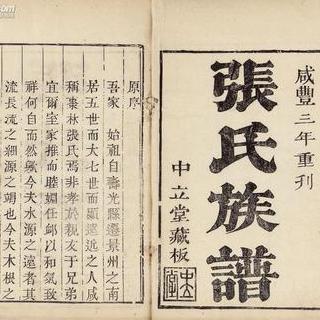 咸豐三年重刊
張氏族譜
中立堂藏板
中立堂
原序
吾家 始祖自壽光縣遷景州之南
居五世而大七世而顯遠近之人咸
稱棗林張氏焉非孝於親友于兄弟
宜爾室家推而睦婣任卹以和氣致
祥何自而然歟今夫水源之遠者其
流長流之細源之塲也今夫木根之